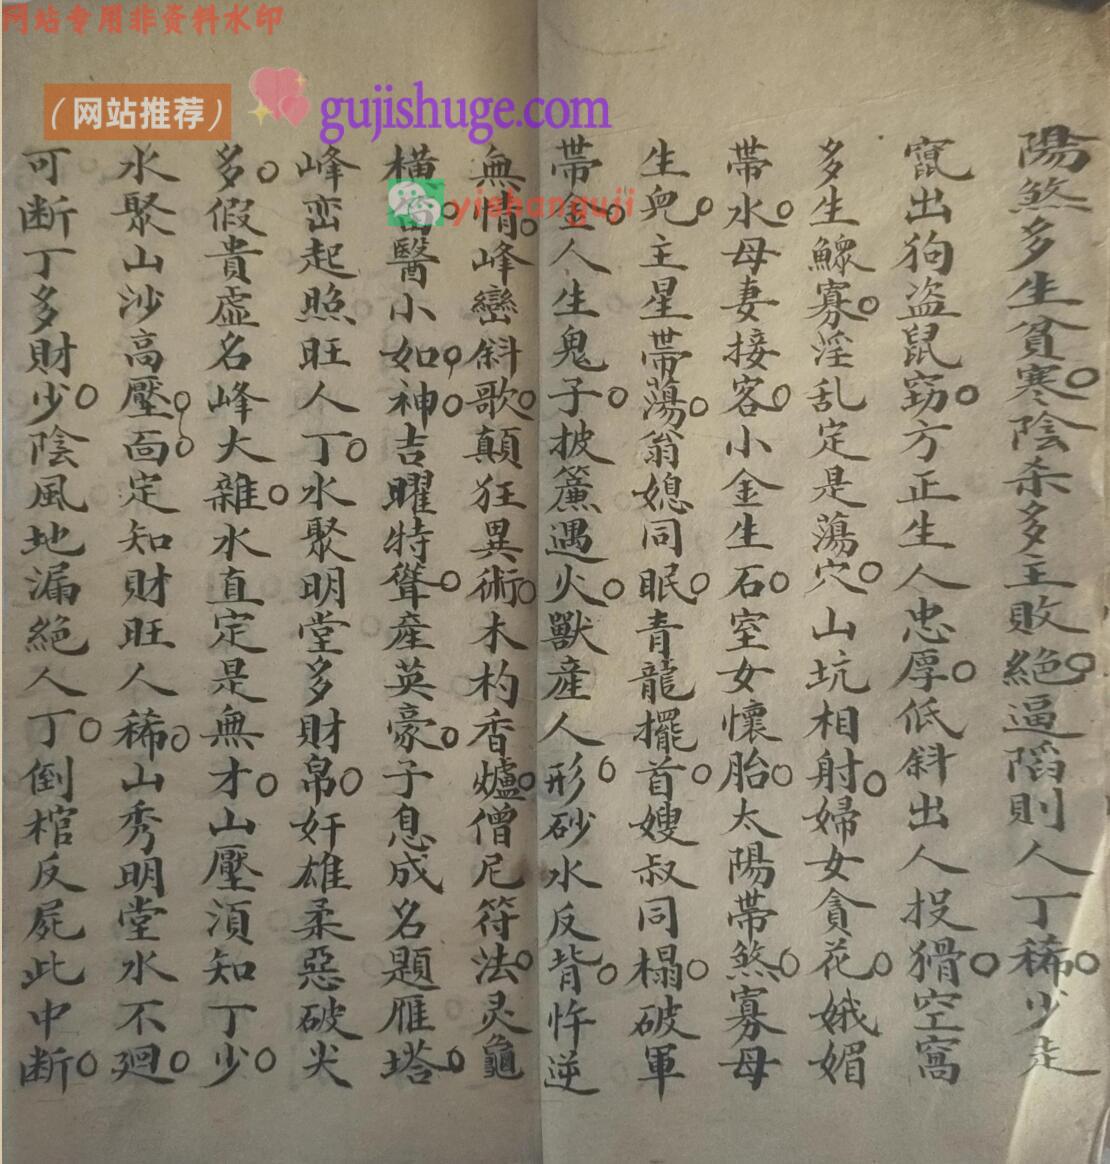 网站专用非资料水印
（网站推荐）
gujishuge.com
yishanguji
陽煞多生貧寒陰杀多主敗絕逼陷則人丁稀少走
竄出狗盗鼠窃方正生人忠厚低斜出人投猾空窩
多生鰥寡淫乱定是蕩穴山坑相射婦女貪花娥媚
帶水母妻接客小金生石室女懷胎太陽帶煞寡母
生兒主星帶蕩翁媳同眠青龍擺首嫂叔同榻破軍
帶金人生鬼子披簾遇火獸産人形砂水反背忤逆
無情峰巒斜歌顛狂異術木杓香爐僧尼符法灵龜
橫窩醫小如神吉曜特聳產英豪子息成名題雁塔
峰峦起照旺人丁水聚明堂多財帛奸雄柔惡破尖
多假貴虛名峰大雜水直定是無才山壓湏知丁少
水聚山沙高壓面定知財旺人稀山秀明堂水不廻
可断丁多財少陰風地漏絕人丁倒棺反屍此中断